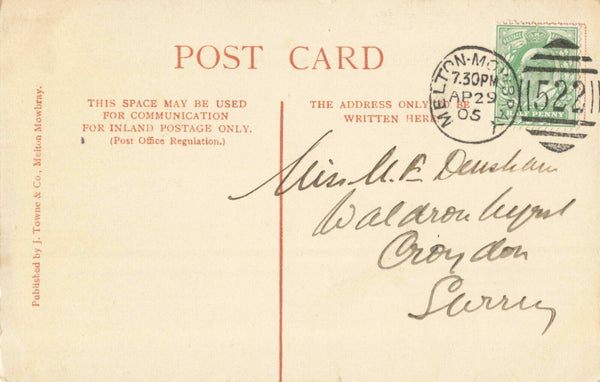 POST CARD
THIS SPACE MAY BE USED
FOR COMMUNICATION
FOR INLAND POSTAGE ONLY.
(Post Office Regulation.)
THE ADDRESS ONLY BE
WRITTEN HERE
MELTON-MOWBRAY
7.30PM
AP 29
05
522
PENNY
Miss M. E. Densham
Waldronhyrst
Croydon
Surrey
Published by J. Towne & Co., Melton Mowbray.